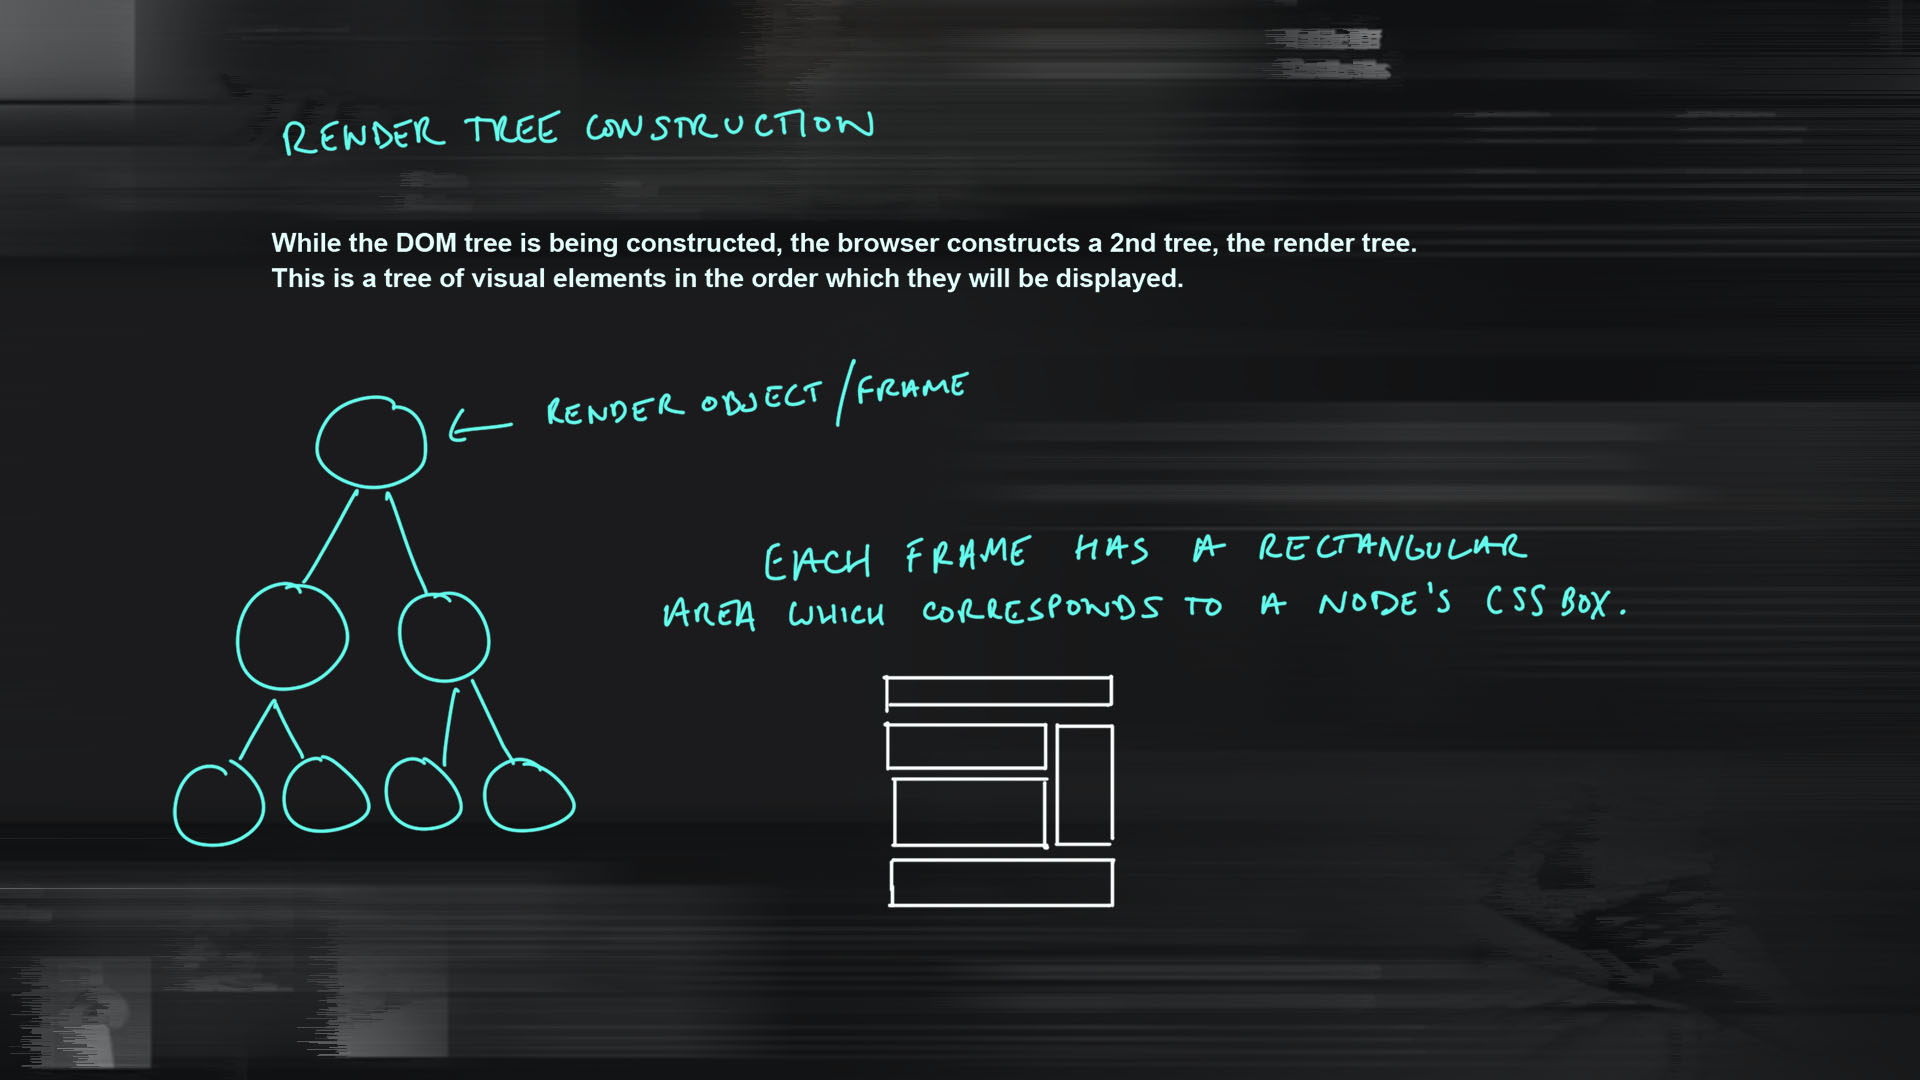 RENDER TREE CONSTRUCTION
While the DOM tree is being constructed, the browser constructs a 2nd tree, the render tree.
This is a tree of visual elements in the order which they will be displayed.
RENDER OBJECT/FRAME
EACH FRAME HAS A RECTANGULAR
AREA WHICH CORRESPONDS TO A NODE'S CSS BOX.